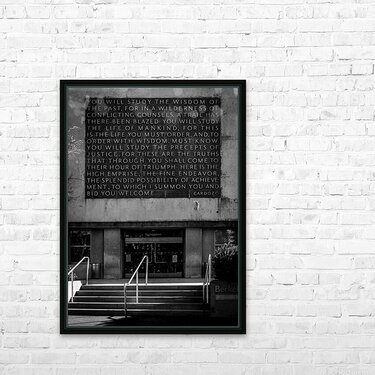 YOU WILL STUDY THE WISDOM OF
THE PAST, FOR IN A WILDERNESS OF
CONFLICTING COUNSELS, A TRAIL HAS
THERE BEEN BLAZED. YOU WILL STUDY
THE LIFE OF MANKIND, FOR THIS
IS THE LIFE YOU MUST ORDER, AND, TO
ORDER WITH WISDOM, MUST KNOW.
YOU WILL STUDY THE PRECEPTS OF
JUSTICE, FOR THESE ARE THE TRUTHS
THAT THROUGH YOU SHALL COME TO
THEIR HOUR OF TRIUMPH. HERE IS THE
HIGH EMPRISE, THE FINE ENDEAVOR,
THE SPLENDID POSSIBILITY OF ACHIEVE
MENT, TO WHICH I SUMMON YOU AND
BID YOU WELCOME.
CARDOZO
Berke